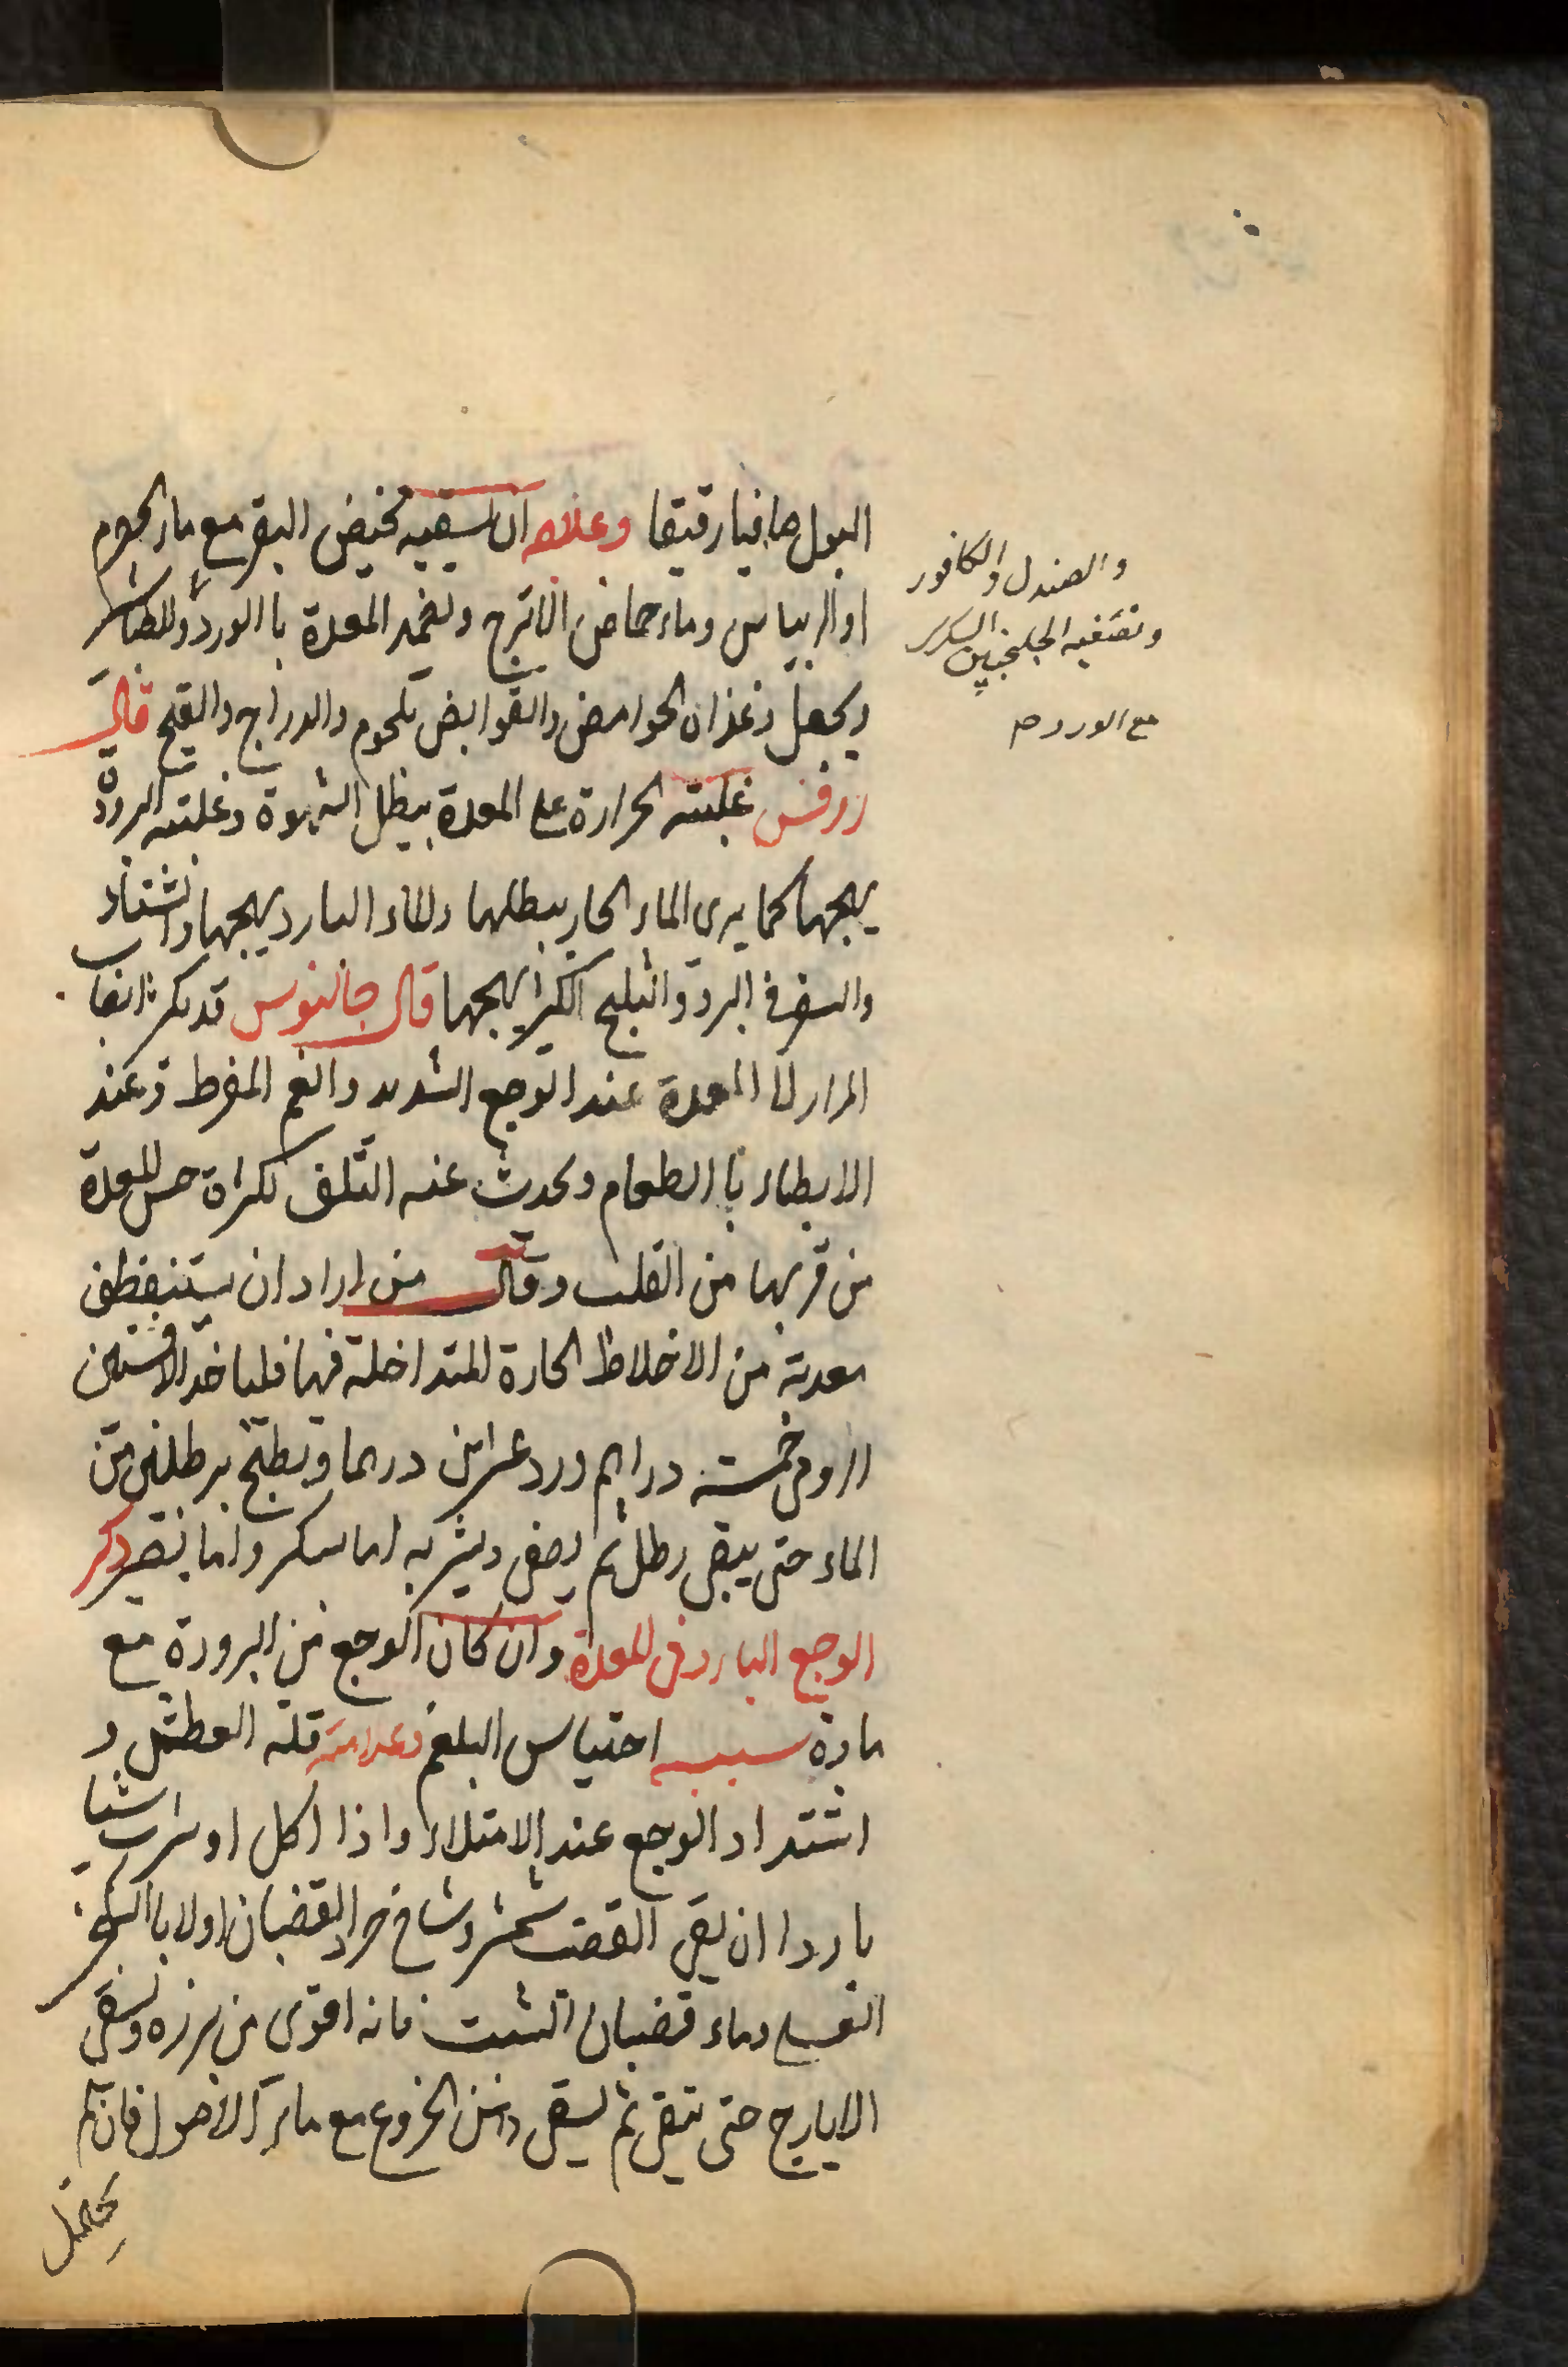 البول صافيا رقيقا وعلاجه ان يسقيه مخيض البقر مع ماء الحصرم
او الريباس وماء حماض الاترج ويضمد المعدة با الورد والطباشير
ويجعل غذاؤه الحوامض والقوابض بلحوم والدراج والقبج قال
روفس غلبته الحرارة على المعدة يبطل الشهوة وغلبته البرودة
يهيجها كما يرى الماء الحار يبطلها والماء البارد يهيجها والشتاء
والسفر في البرد والثلج الكثير يهيجها قال جالينوس قد يكثر انصاب
المرار الى المعدة عند الوجع الشديد والغم المفرط وعند
الابطاء با الطعام ويحدث عنه التلف لكثرة حس المعدة
من قربها من القلب وقال من اراد ان يستنظف
معدته من الاخلاط الحارة المتداخلة فيها فلياخد الافسنتين
الرومى خمسته دراهم ورد عشرين درهما ويطبخ برطلين من
الماء حتى يبقى رطل ثم يصفى ويشربه اما سكر واما بصبر ذكر
الوجع البارد فى المعدة وان كان الوجع من البرودة مع
مادة سببه احتباس البلغم وعلامته قلة العطش و
اشتداد الوجع عند الامتلاء واذا اكل او شرب شيا
باردا ان يقى اولا با السكنجبين
العسلى وماء قضبان الشبت فانه اقوى من بزره ويسقى
الايارج حتى ينقى ثم يسقى دهن الخروع مع ماء الاصول فان لم
يحتمل
والصندل والكافور
وتسقيه الجلنجبين السكرى
مع الورد صح